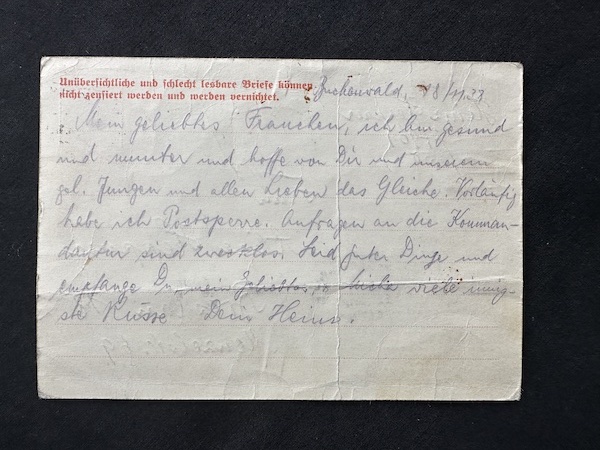 Unübersichtliche und schlecht lesbare Briefe können
nicht zensiert werden und werden vernichtet.
Buchenwald,
Mein geliebtes Frauchen, ich bin gesund
und munter und hoffe von Dir und unserem
gel. Jungen und allen Lieben das Gleiche. Vorläufig
habe ich Postsperre. Anfragen an die Komman-
dantur sind zwecklos. Seid guter Dinge und
empfange Du, mein Geliebtes, viele innig-
ste Küsse Dein Heinz.